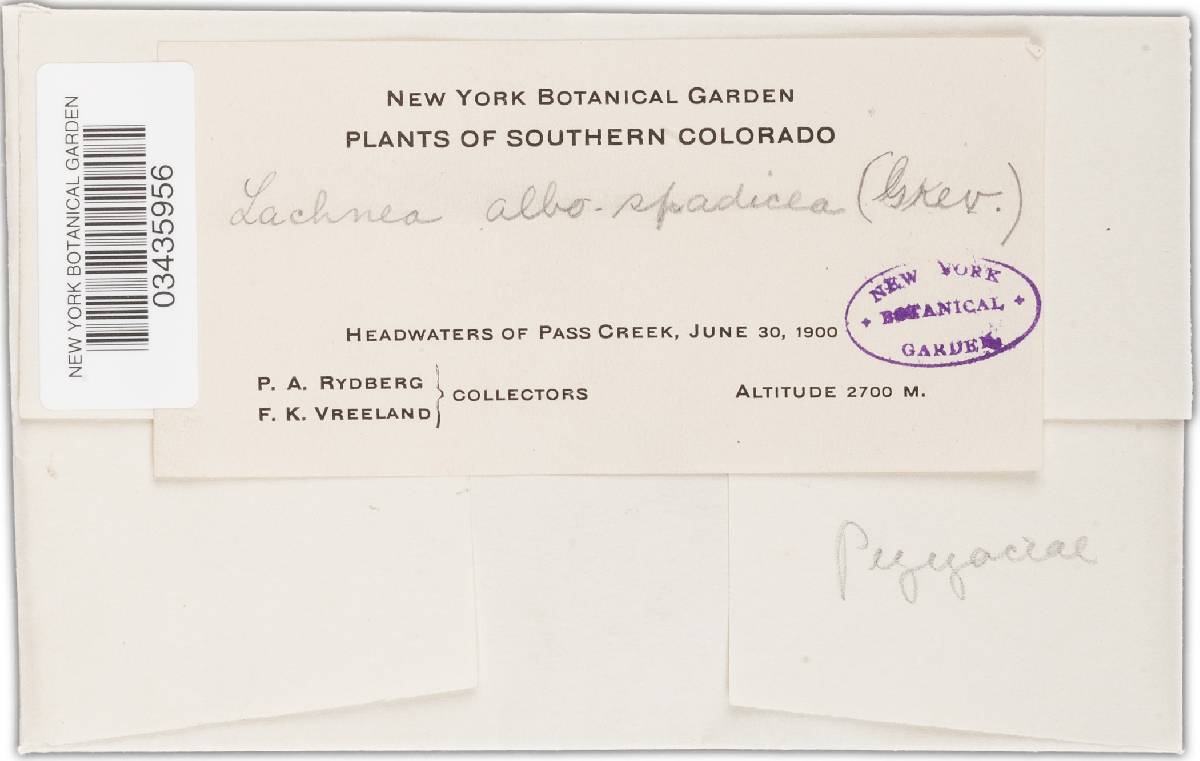 NEW YORK BOTANICAL GARDEN
PLANTS OF SOUTHERN COLORADO
Lachnea albo-spadicea (Grev.)
NEW YORK
+ BOTANICAL +
GARDEN
HEADWATERS OF PASS CREEK, JUNE 30, 1900
P. A. RYDBERG
F. K. VREELAND
} COLLECTORS
ALTITUDE 2700 M.
NEW YORK BOTANICAL GARDEN
03435956
Pezizaceae